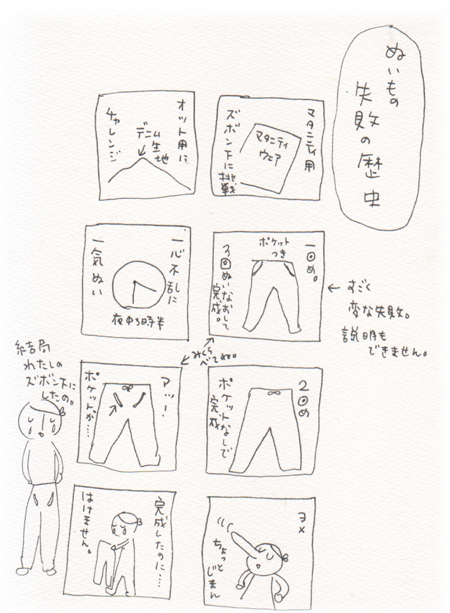 ぬいもの
失敗の歴史
マタニティ用
ズボン下に挑戦
マタニティ
ウェア
一回め。
ポケット
つき
3回ぬいなおして
完成。
すごく
変な失敗。
説明も
できません。
2回め
ポケットなしで
完成
ヨメ
ちょっと
じまん
オット用に
チャレンジ
デニム
生地
一心不乱に
一気ぬい
夜中3時半
みくら
べてね。
アッ!
ポケットが……
完成したのに…
はけません。
結局
わたしの
ズボン下に
したの。